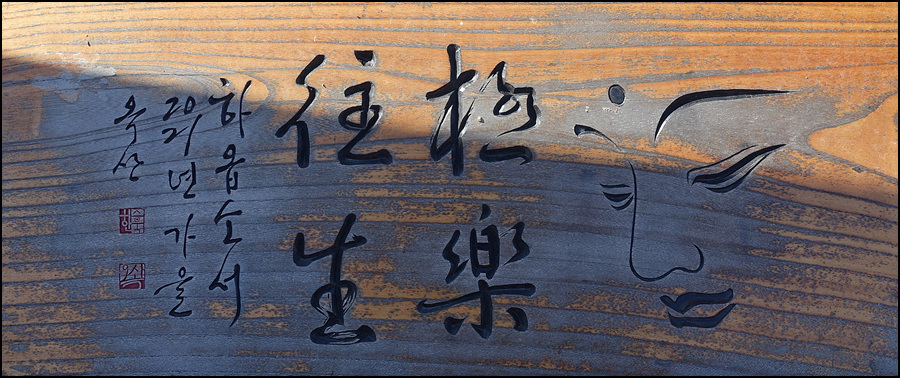 極樂
往生
하옵소서
2021년 가을
옥산